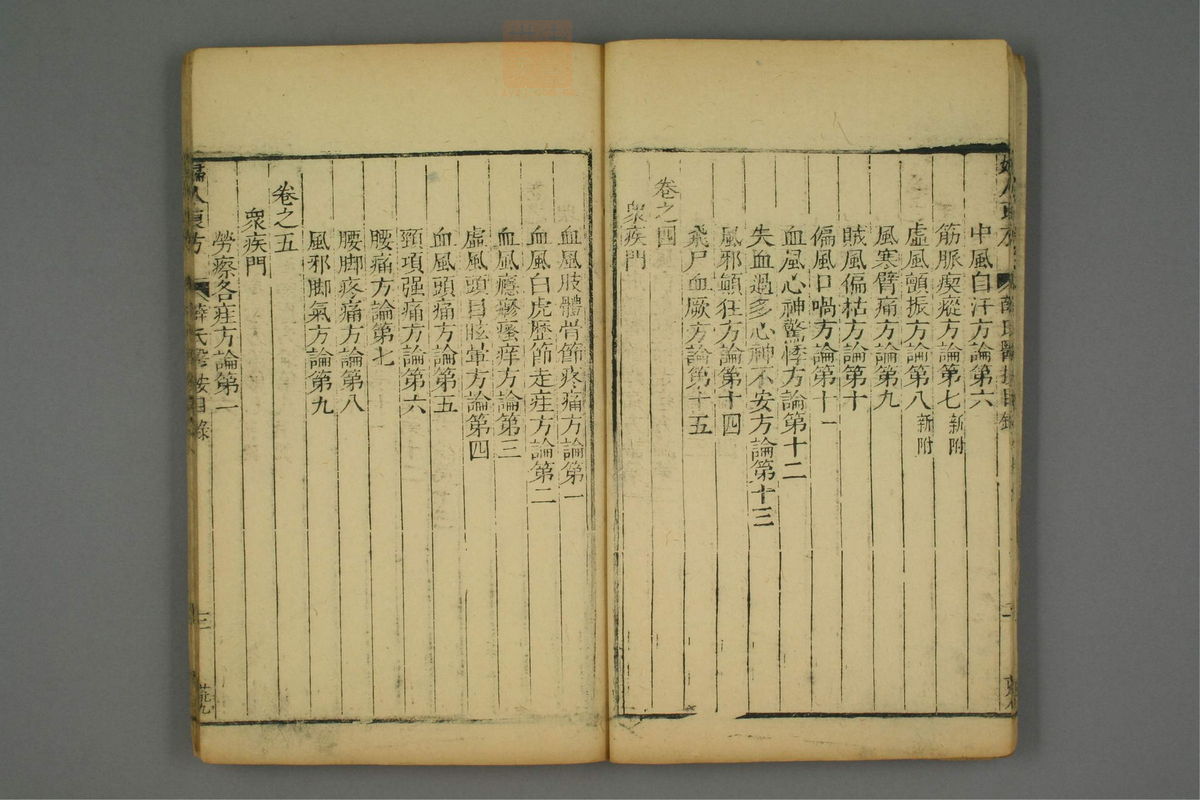 中風自汗方論第六
筋脈瘈瘲方論第七新附
虛風顫振方論第八新附
風寒臂痛方論第九
賊風偏枯方論第十
偏風口喎方論第十一
血風心神驚悸方論第十二
失血過多心神不安方論第十三
風邪顛狂方論第十四
飛尸血厥方論第十五
卷之四
衆疾門
血風肢體骨節疼痛方論第一
血風白虎歷節走疰方論第二
血風癮疹瘙痒方論第三
虛風頭目眩暈方論第四
血風頭痛方論第五
頸項强痛方論第六
腰痛方論第七
腰脚疼痛方論第八
風邪脚氣方論第九
卷之五
衆疾門
勞瘵各疰方論第一
婦人良方
薛氏醫按目錄
三